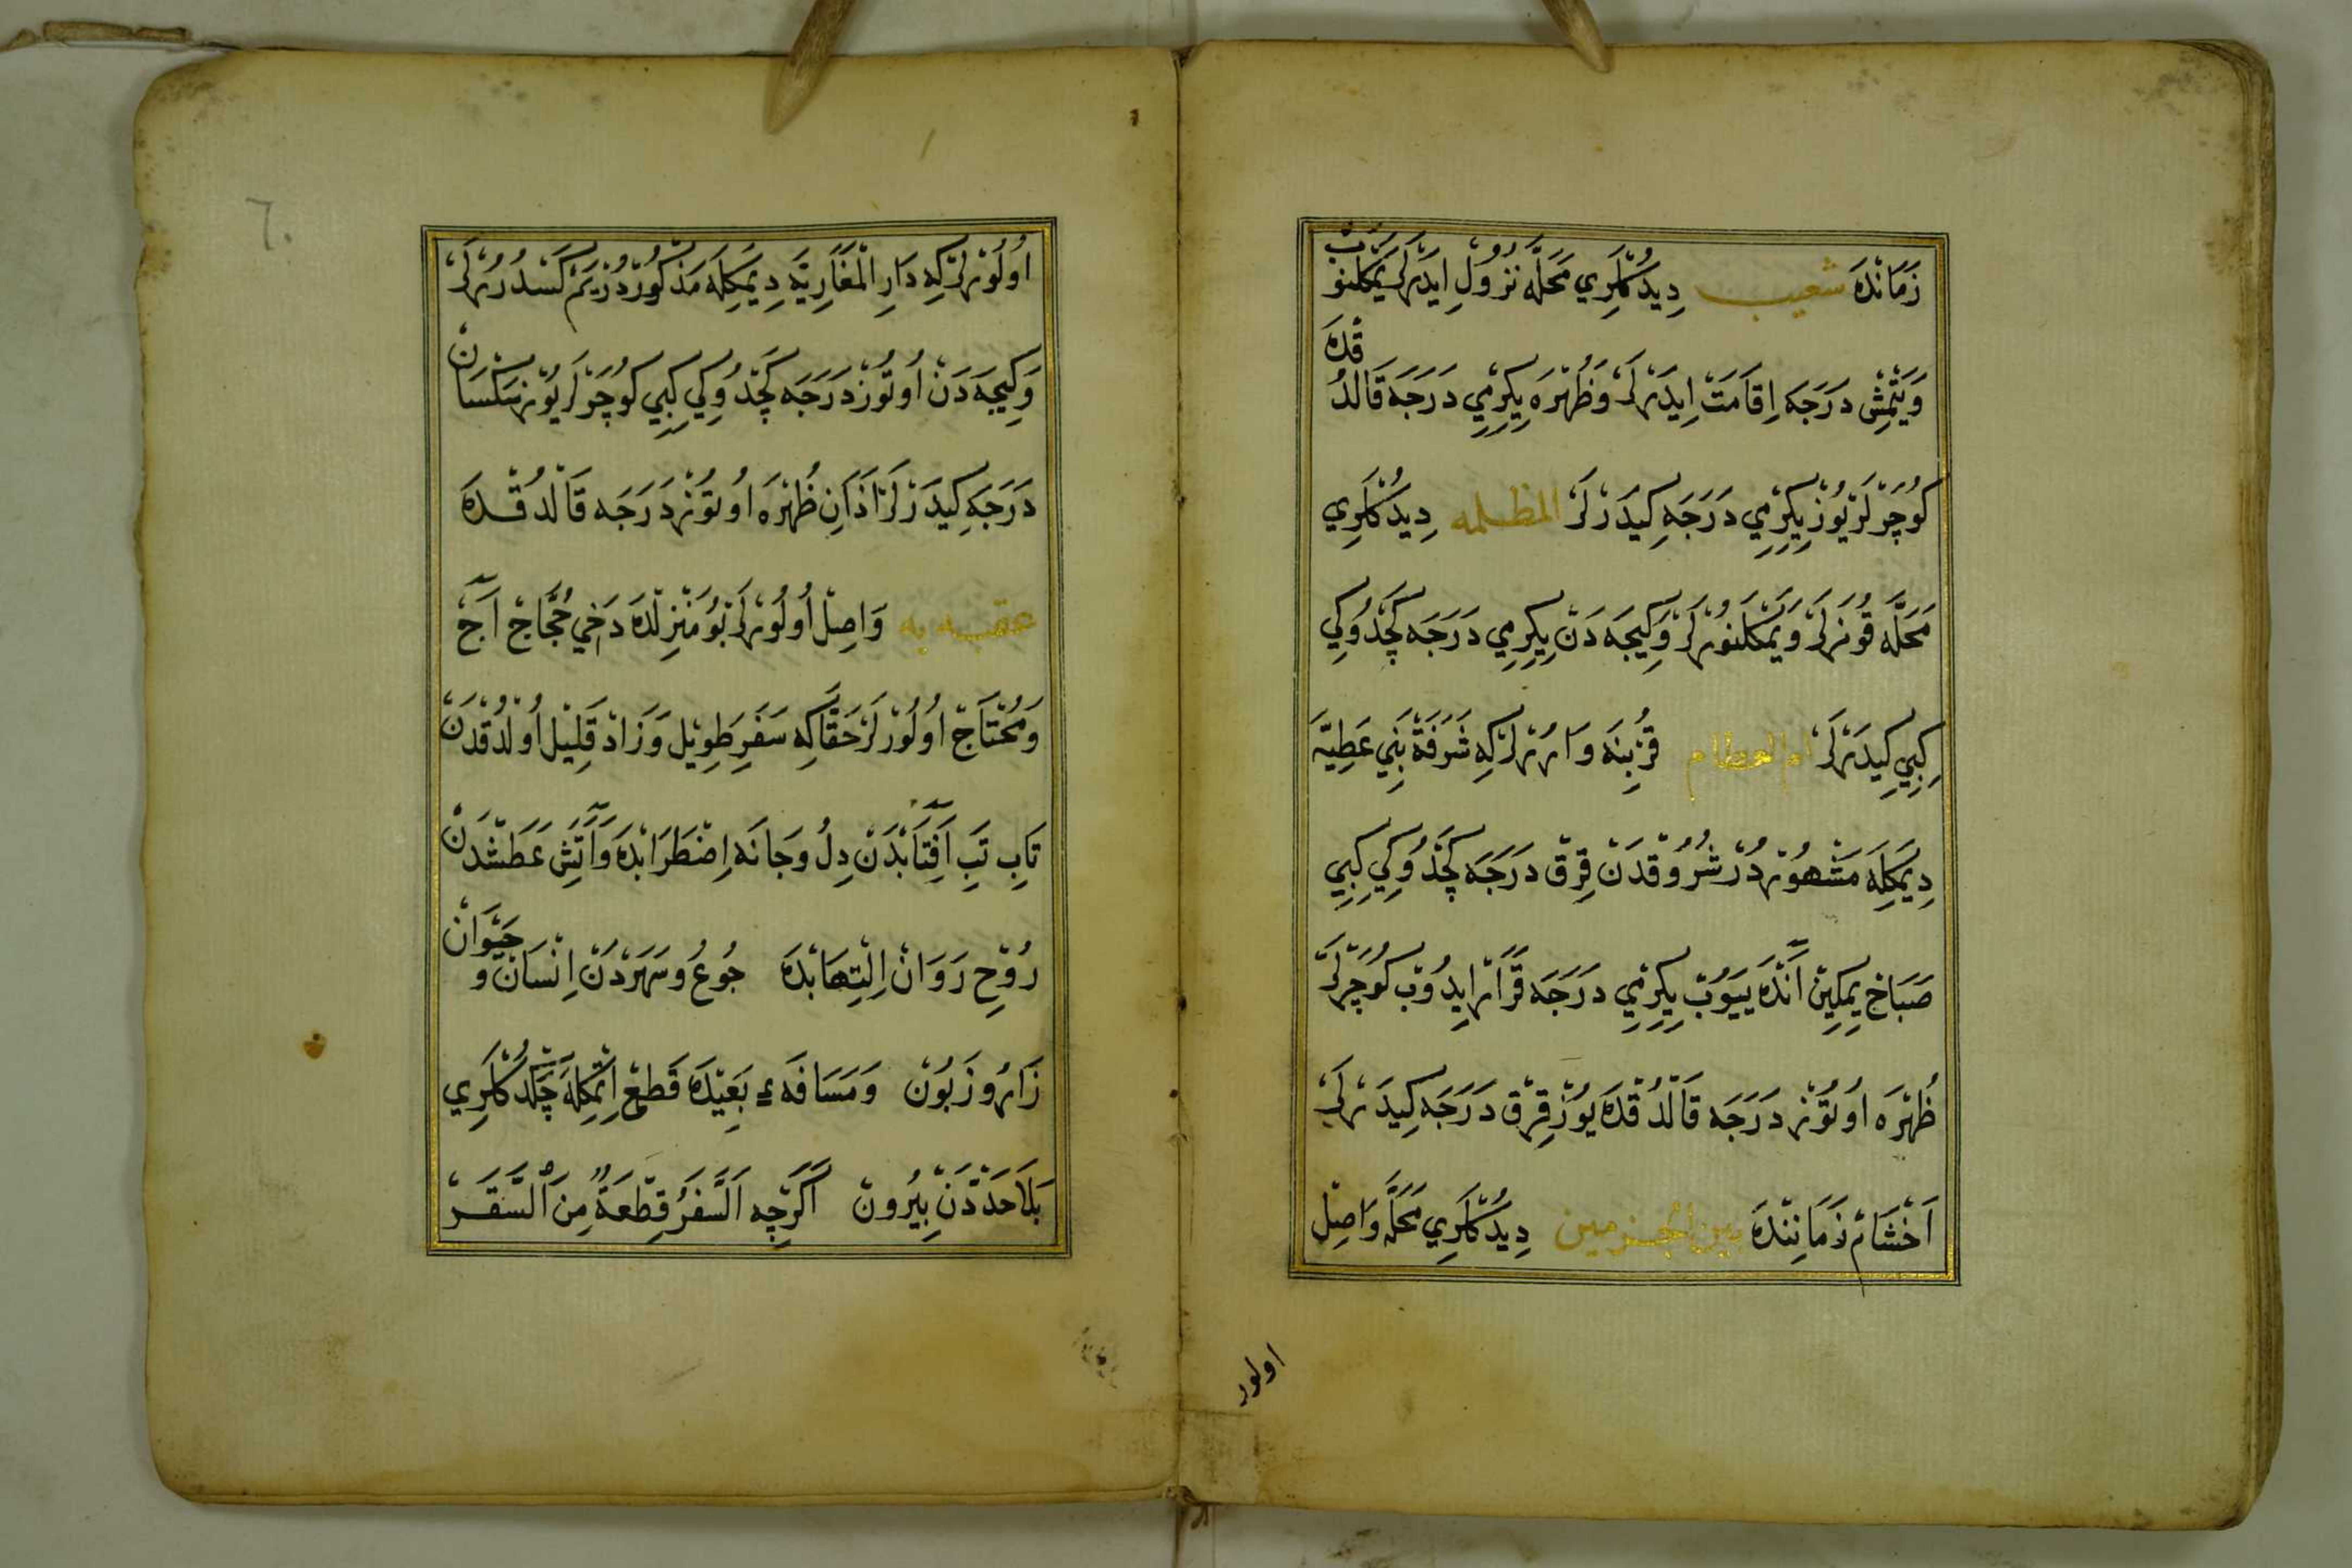 زَمَانْدَه شعيب دِيدُكْلَرِي مَحَلَّه نُزُولْ ايدَرْلَر يَمَكْلَنُوبْ
وَيَتْمِشْ دَرَجَه اِقَامَتْ اِيدَرْلَرْ وَظُهْرَه يِكِرْمِي دَرَجَه قَالْدُقْدَه
كُوچَرْلَرْ يُوزْ يِكِرْمِي دَرَجَه كِيدَرْلَرْ المظلمه دِيدُكْلَرِي
مَحَلَّه قُونَرْلَرْ وَيَمَكْلَنُورْلَرْ وَكِيجَه دَنْ يِكِرْمِي دَرَجَه كَچْدُوكِي
كِبِي كِيدَرْلَرْ ام العظام قُرْبِنَه وَارُرْلَرْ كِه شَرَفَةْ بَنِي عَطِيَّه
دِيمَكِلَه مَشْهُورْدُرْ شُرُوقْدَنْ قِرْقْ دَرَجَه كَچْدُوكِي كِبِي
صَبَاحْ يِمَكِينْ آنْدَه يِيَوُبْ يِكِرْمِي دَرَجَه قَرَارْ ايِدُوبْ كُوچَرْلَرْ
ظُهْرَه اوُتُوزْ دَرَجَه قَالْدُقْدَه يُوزْ قِرْقْ دَرَجَه كِيدَرْلَرْ
اَخْشَامْ زَمَانِنْدَه بين الجزمين دِيدُكْلَرِي مَحَلَّه وَاصِلْ
اولور
٦٠
اوُلُورْلَرْ كِه دَارِ الْمَغَارِبَه دِيمَكِلَه مَذْكُورْدُرْ يَمَكْسَدُرُرْلَرْ
وَكِيجَه دَنْ اوُتُوزْ دَرَجَه كَچْدُوكِي كِبِي كُوچَرْلَرْ يُوزْ سَكْسَانْ
دَرَجَه كِيدَرْلَرْ اَذَانِ ظُهْرَه اوُتُوزْ دَرَجَه قَالْدُقْدَه
عقبه يه وَاصِلْ اوُلُورْلَرْ بُو مَنْزِلْدَه دَخِي حُجَّاجْ آجْ
وَمُحْتَاجْ اوُلُورْلَرْ حَقَّاكِه سَفَرِ طَوِيْلْ وَزَادْ قَلِيْلْ اوُلْدُقْدَنْ
تَابِ تَبِ آفِتَابْدَنْ دِلْ وَجَانَه اِضْطَرَابْدَه وَآتَشِ عَطَشْدَنْ
رُوْحِ رَوَانْ اِلْتِهَابْدَه جُوعُ وسَهَرْدَنْ اِنْسَانْ و حَيْوَانْ
زَارُ وزَبُونْ وَمَسَافَهءِ بَعِيْدَه قَطْعْ اِتْمَكِلَه چَكْدُكْلَرِي
بَلَا حَدْدَنْ بِيْرُونْ اَكَرْچِه اَلسَّفَرُ قِطْعَةٌ مِنَ السَّقَرْ